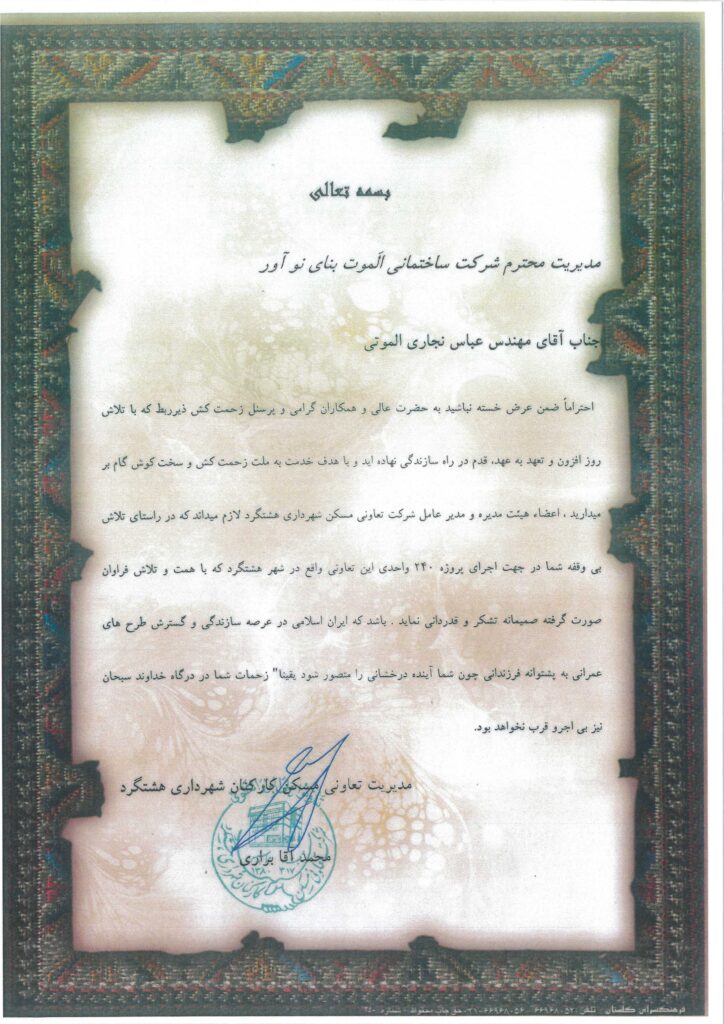 بسمه تعالی
مدیریت محترم شرکت ساختمانی الموت بنای نو آور
جناب آقای مهندس عباس نجاری الموتی
احتراماً ضمن عرض خسته نباشید به حضرت عالی و همکاران گرامی و پرسنل زحمت کش ذیربط که با تلاش
روز افزون و تعهد به عهد، قدم در راه سازندگی نهاده اید و با هدف خدمت به ملت زحمت کش و سخت کوش گام بر
میدارید ، اعضاء هیئت مدیره و مدیر عامل شرکت تعاونی مسکن شهرداری هشتگرد لازم میداند که در راستای تلاش
بی وقفه شما در جهت اجرای پروژه ۲۴۰ واحدی این تعاونی واقع در شهر هشتگرد که با همت و تلاش فراوان
صورت گرفته صمیمانه تشکر و قدردانی نماید . باشد که ایران اسلامی در عرصه سازندگی و گسترش طرح های
عمرانی به پشتوانه فرزندانی چون شما آینده درخشانی را متصور شود یقینا" زحمات شما در درگاه خداوند سبحان
نیز بی اجرو قرب نخواهد بود.
مدیریت تعاونی مسکن کارکنان شهرداری هشتگرد
محمد آقا براری
۱۳۸۰ ۳۱۷
فرهنگسرای گلستان - تلفن: ۶۶۹۶۸۰۵۲ - ۰۲۱-۶۶۹۶۸۰۵۶ حق چاپ محفوظ - شماره ۲۵۰